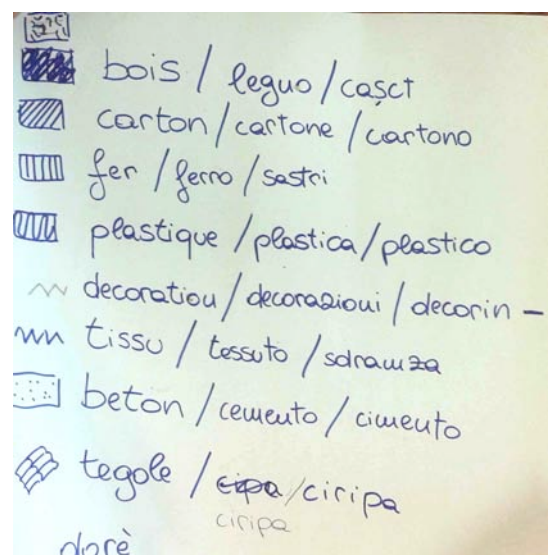 bois / legno / casct
carton / cartone / cartono
fer / ferro / sastri
plastique / plastica / plastico
decoration / decorazioni / decorin -
tissu / tessuto / sdramza
beton / cemento / cimento
tegole / cipa / ciripa
ciripa
dorè